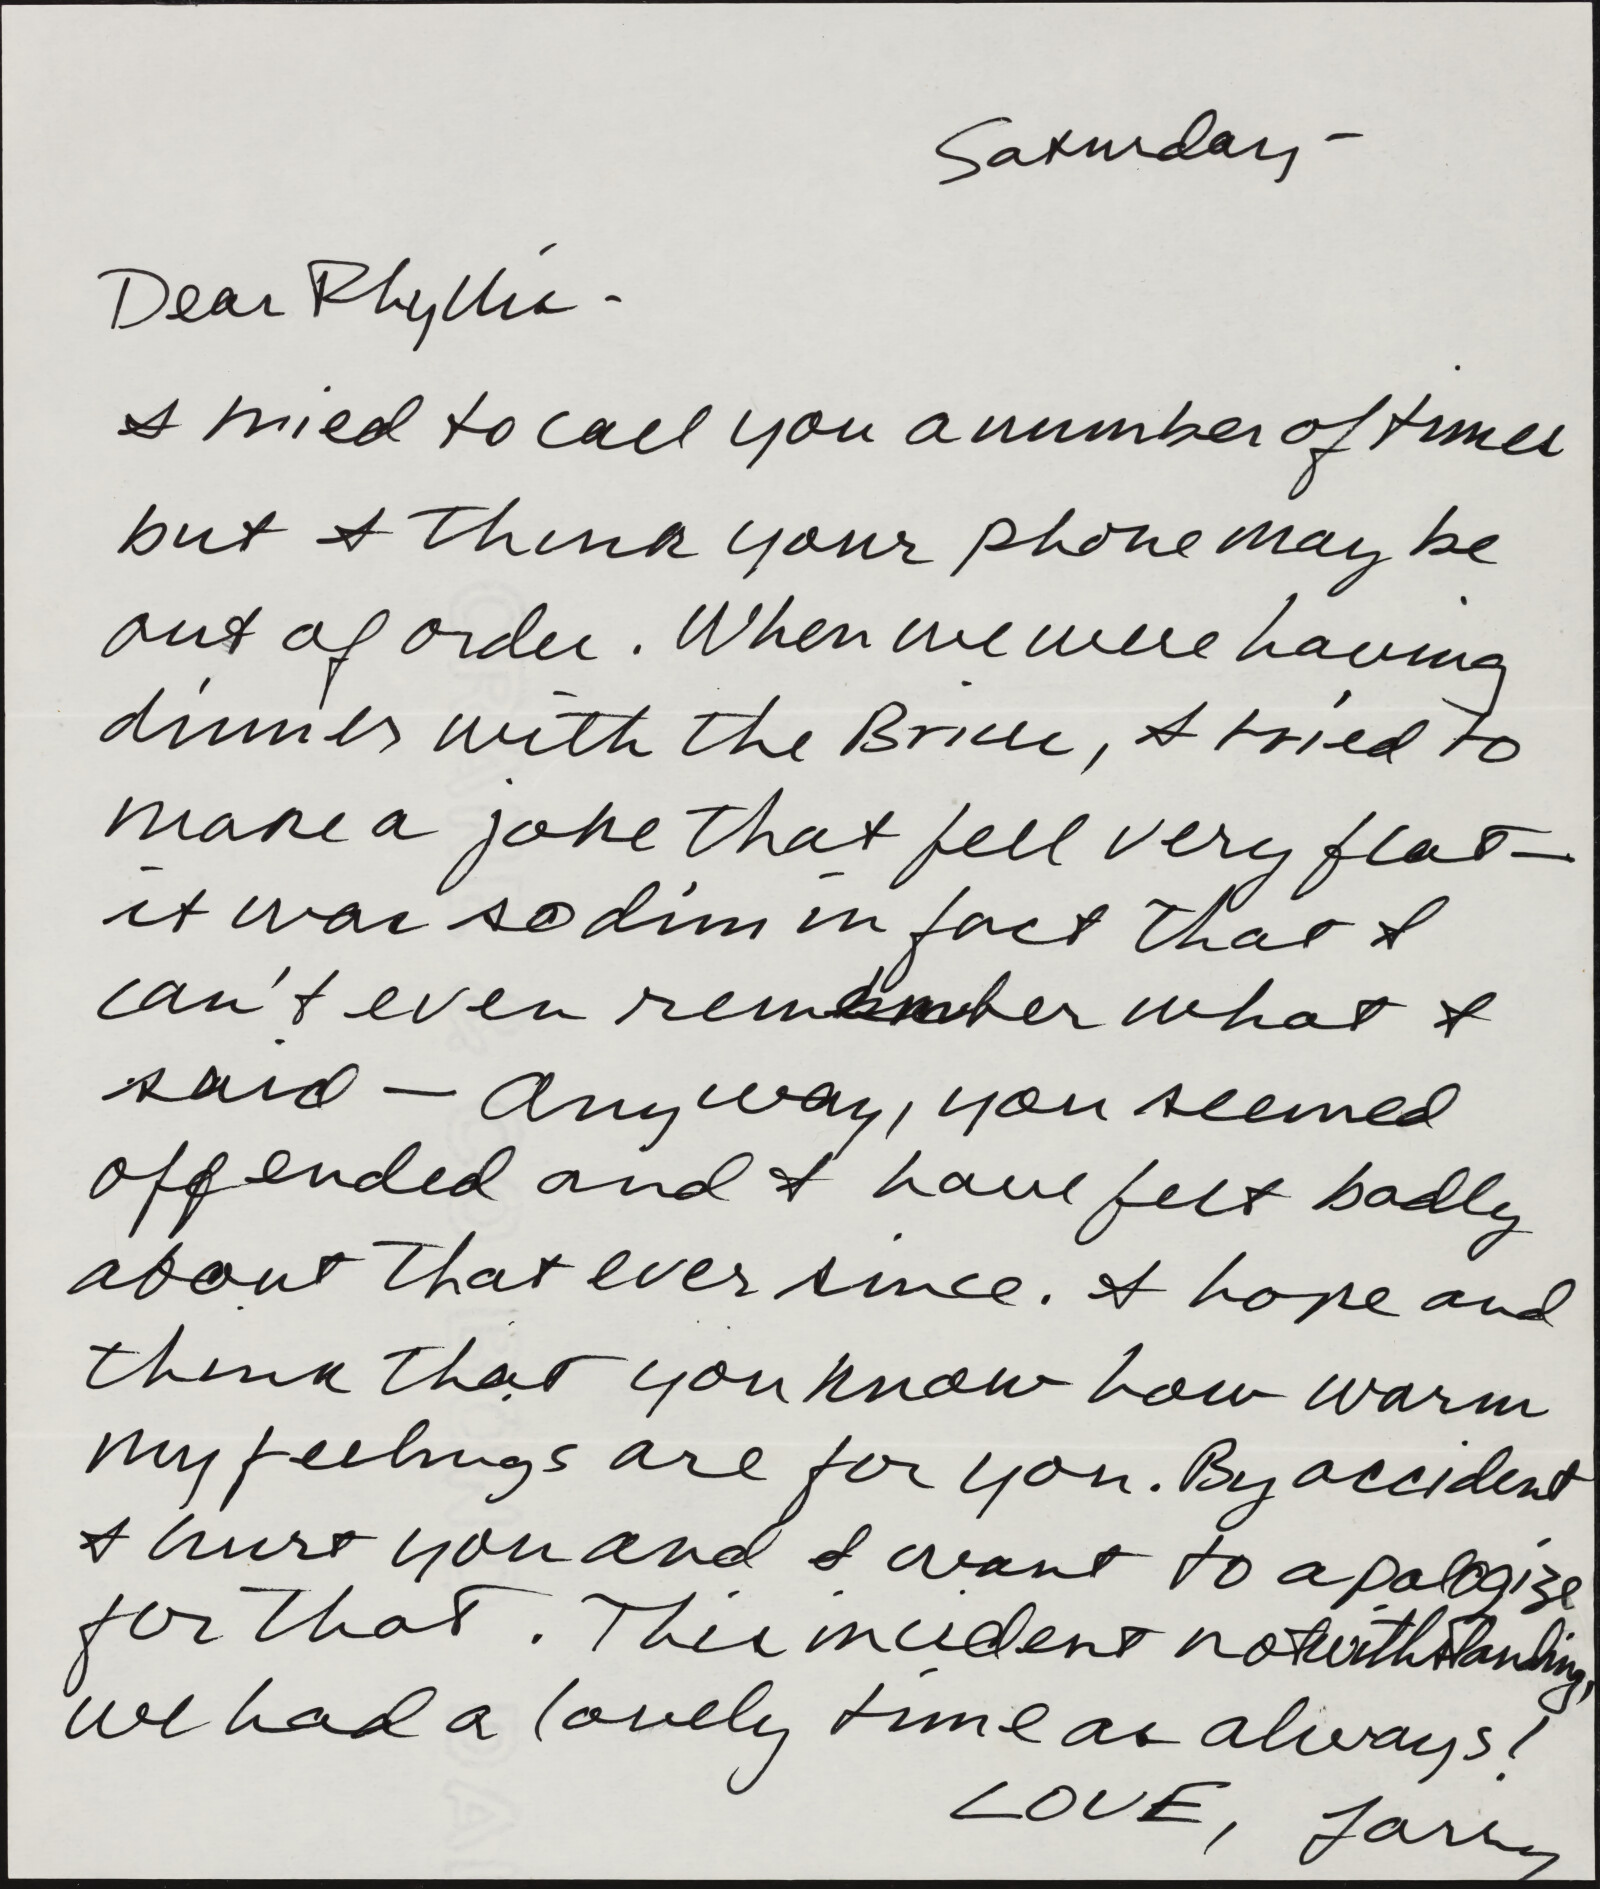 Saturday -
Dear Phyllis -
I tried to call you a number of times
but I think your phone may be
out of order. When we were having
dinner with the , I tried to
make a joke that fell very flat —
it was so dim in fact that I
can't even remember what I
said — Anyway, you seemed
offended and I have felt badly
about that ever since. I hope and
think that you know how warm
my feelings are for you. By accident
I hurt you and I want to apologize
for that. This incident notwithstanding,
we had a lovely time as always!
LOVE, Larry